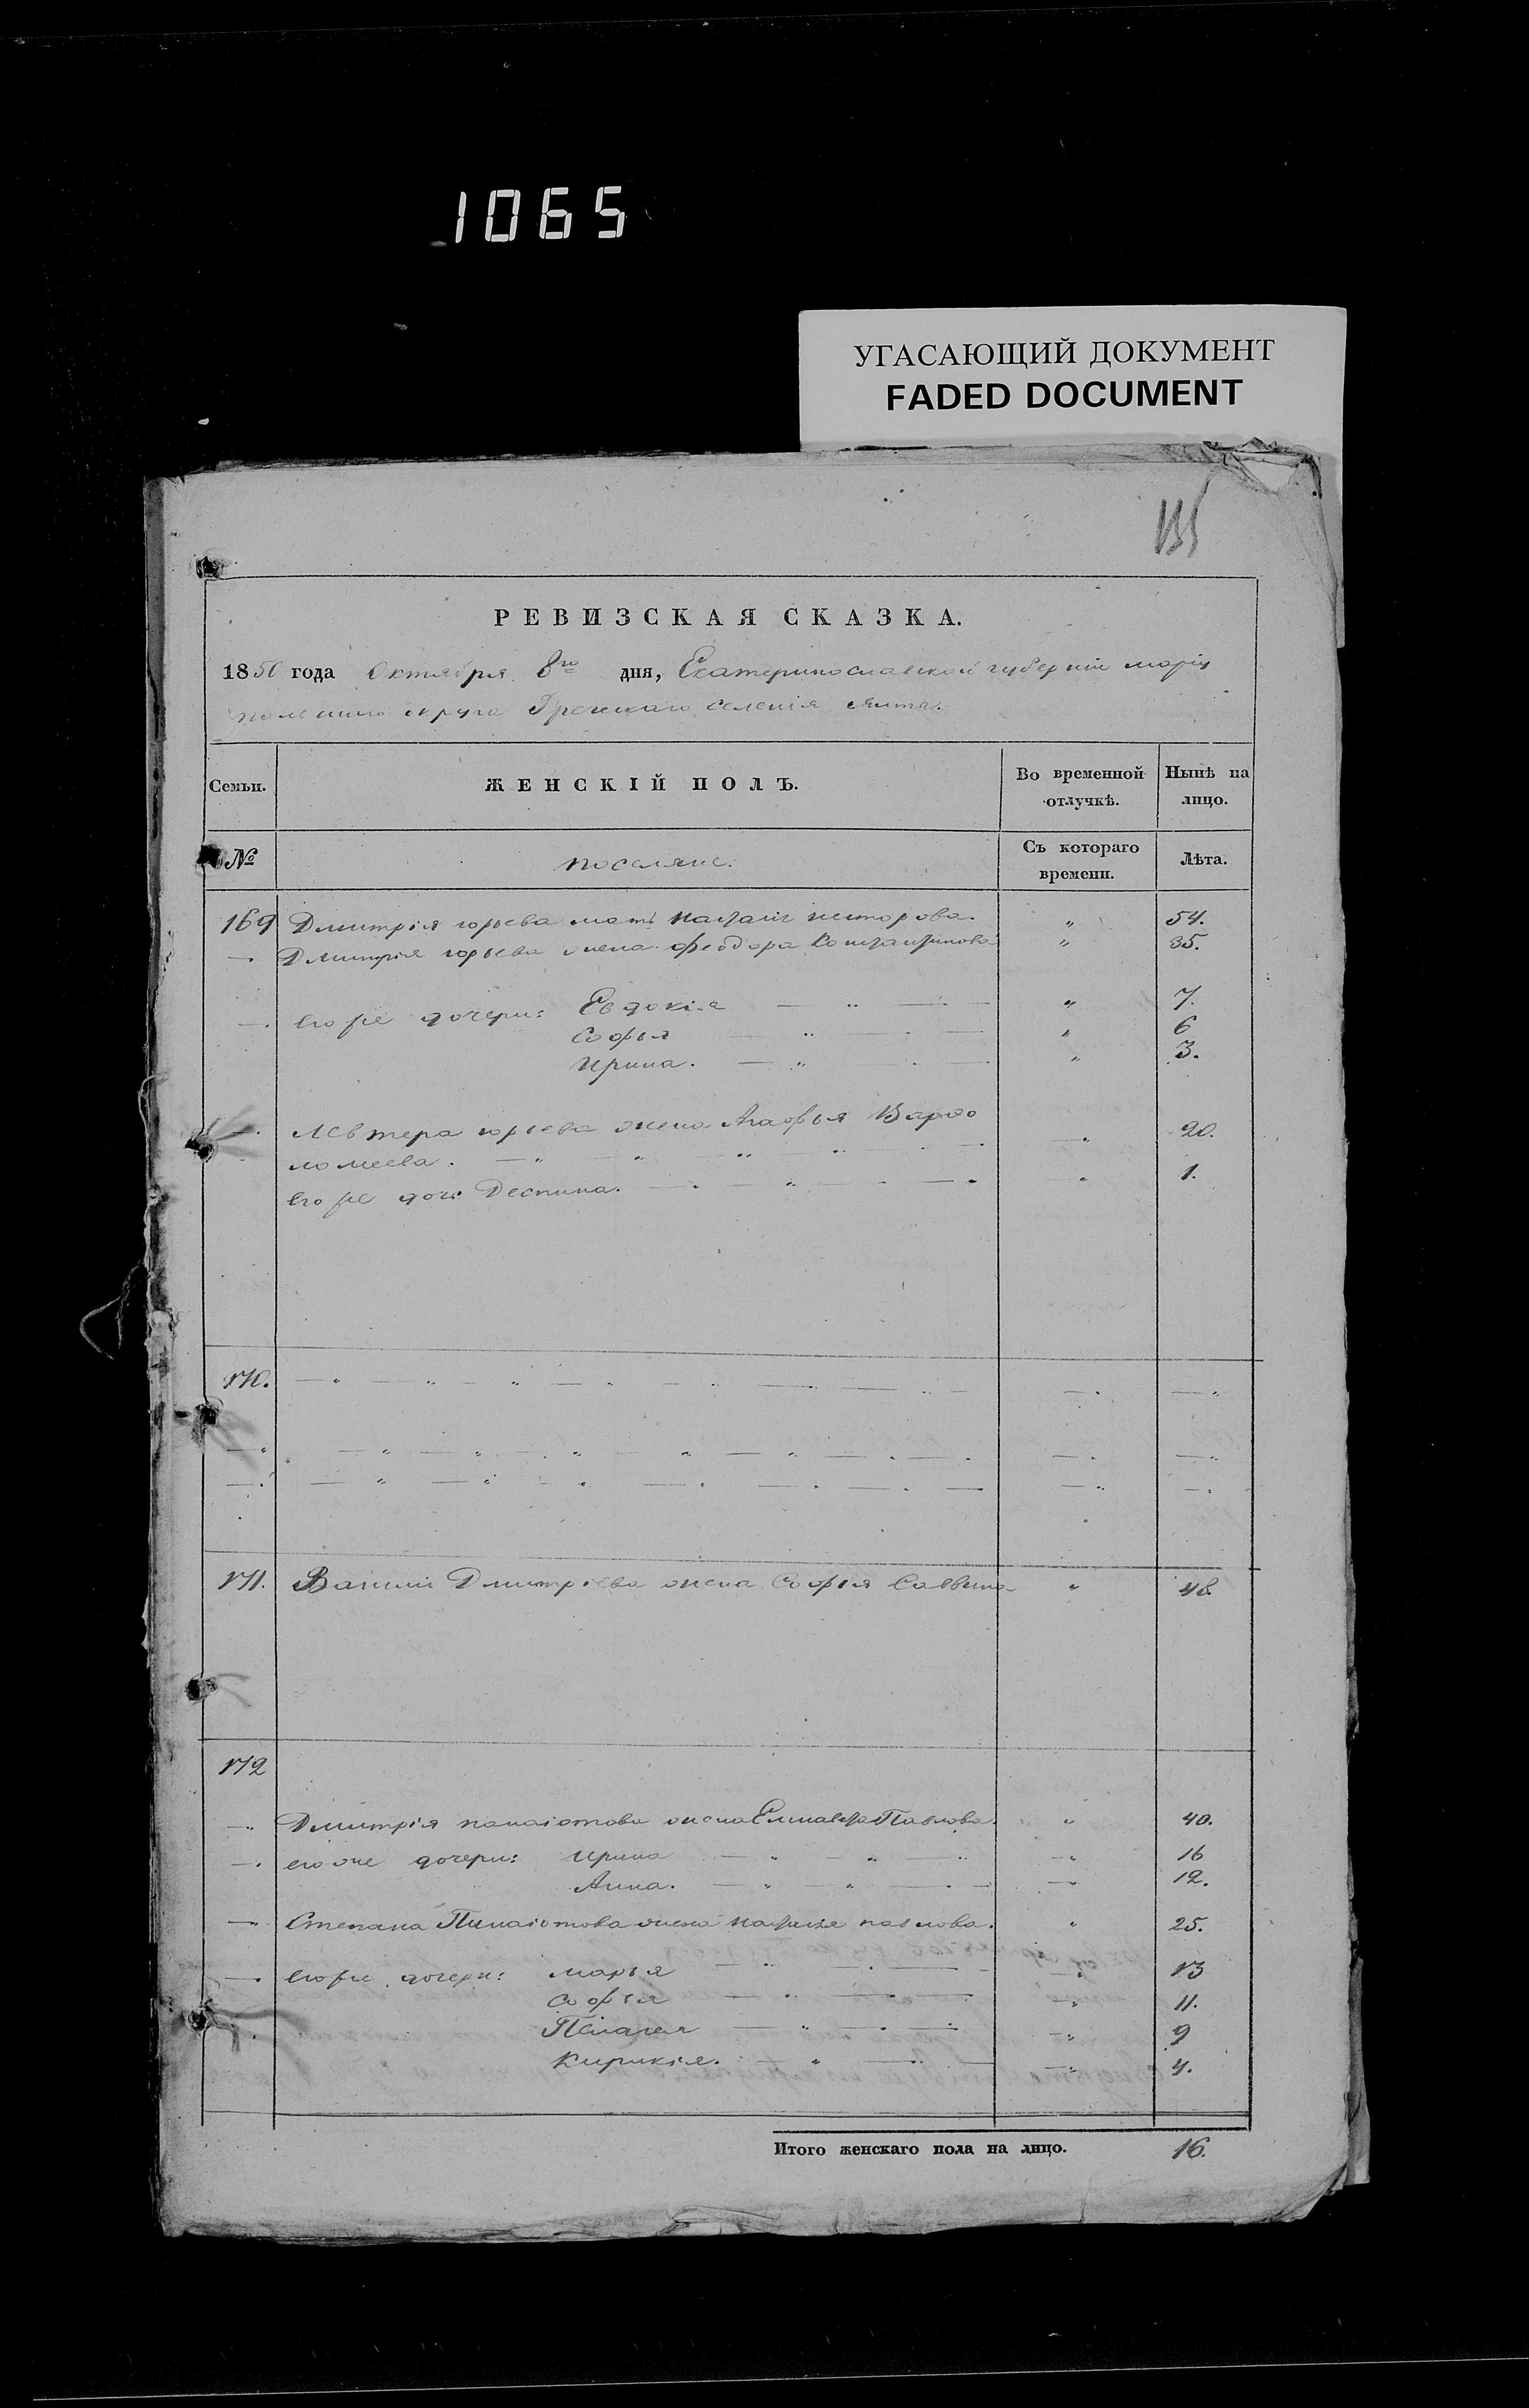 1065
УГАСАЮЩИЙ ДОКУМЕНТ
FADED DOCUMENT
155
РЕВИЗСКАЯ СКАЗКА.
1850 года Октября 8го дня, Екатеринославской губерніи маріу
польскаго округа Греческаго Селенія Ялта.
Семьи.
ЖЕНСКІЙ ПОЛЪ.
Во временной отлучкѣ.
Нынѣ на лицо.
№
поселяне.
Съ котораго времени.
Лѣта.
169 Дмитрія юрьева мать Наталія несторова. " 54.
— Дмитрія юрьева жена феодора Константинова " 35.
—. его же дочери: Евдокія — " — " 7.
Софья " — " 6
Ирина. — " " 3.
—. Левтера юрьева жена Агафья Варфо — " 20.
ломеева. — " — " — "
его же дочь Деспина. — " — " — " 1.
170. — " — " — " — "
— " — " — " — "
— " — " — " — "
171. Василия Дмитріева жена Софья Саввина " 48
172
— " Дмитрія панаіотова жена Елисавета Павлова. " 40.
—. его же дочери: Ирина — " — " 16
Анна. — " — " 12.
— Степана Панаіотова жена Наталія павлова. " 25.
—. его же дочери: марья — " — " 13
Софья — " — " 11.
Пелагея — " — " 9
Кирикія. — " — " 4.
Итого женскаго пола на лицо. 16.